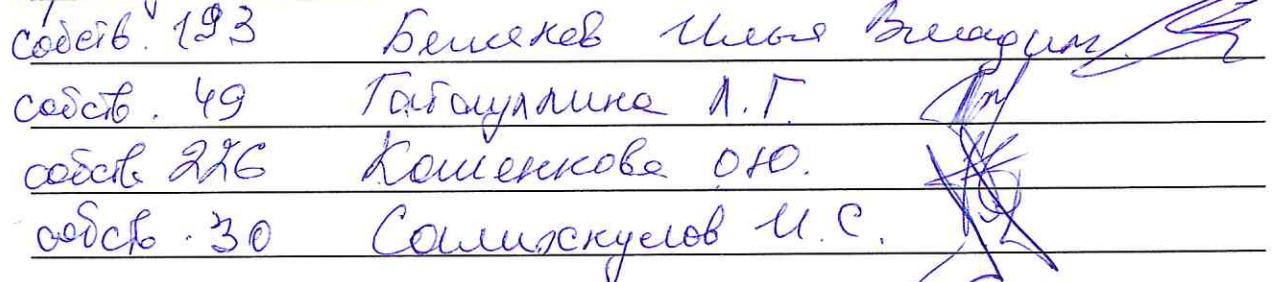 собств. 193 Бешенев Илья Владим.
собств. 49 Гатауллина Л.Г.
собств 226 Кашенкова О.Ю.
собств. 30 Салихкулов И.С.